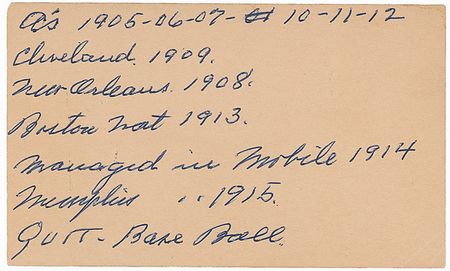 A's 1905-06-07- 10-11-12
Cleveland. 1909.
New Orleans. 1908.
Boston Nat 1913.
Managed in Mobile 1914
Memphis " 1915.
Quit - Base Ball.